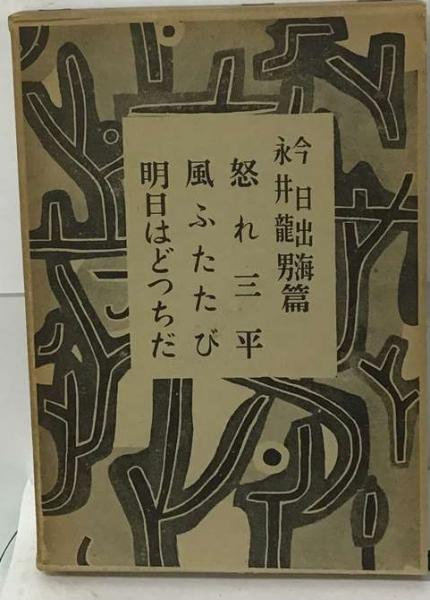 今日出海
永井龍男篇
怒れ三平
風ふたたび
明日はどつちだ